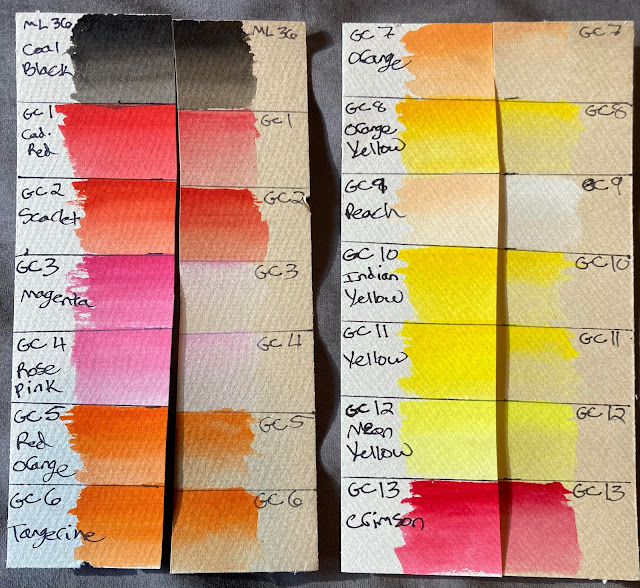 ML 36
Coal
Black
ML 36
GC 1
Cad.
Red
GC 1
GC 2
Scarlet
GC 2
GC 3
Magenta
GC 3
GC 4
Rose
Pink
GC 4
GC 5
Red
Orange
GC 5
GC 6
Tangerine
GC 6
GC 7
Orange
GC 7
GC 8
Orange
Yellow
GC 8
GC 9
Peach
GC 9
GC 10
Indian
Yellow
GC 10
GC 11
Yellow
GC 11
GC 12
Neon
Yellow
GC 12
GC 13
Crimson
GC 13